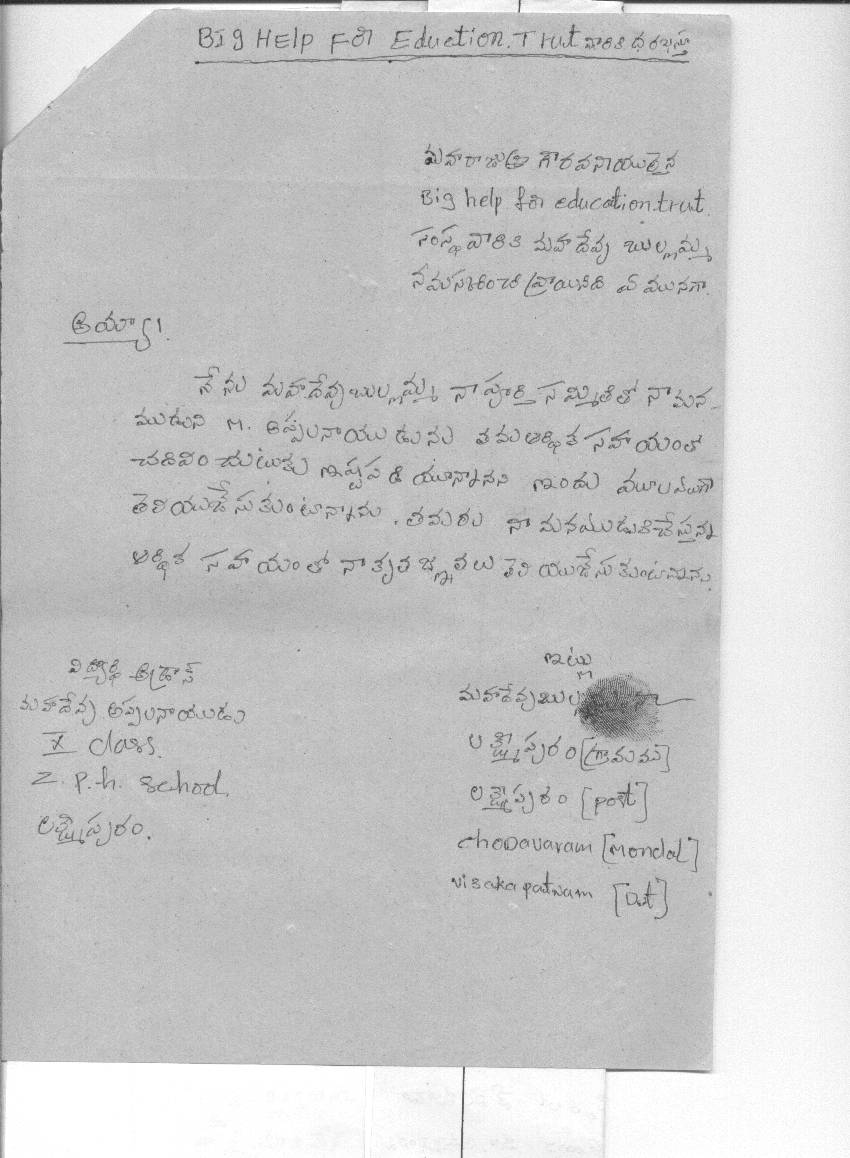 BIg HELP For Eduction.Trut వారికి ధరఖాస్తు
మహారాజశ్రీ గౌరవనియులైన
Big help for education.trut.
సంస్థ వారికి మహాదేవు బుల్లమ్మ
నమస్కరించి వ్రాయునది ఏ మునగా.
అయ్యా!
నేను మహాదేవుబుల్లమ్మ నా పూర్తి సమ్మితితో నా మన-
ముడుని M. అప్పలనాయుడును తమ ఆర్థిక సహాయంతో
చదివించుటకు ఇష్టపడి యున్నానని ఇందు మూలముగా
తెలియజేసుకుంటున్నాను. తమరు నా మనముడుకిచేస్తున్న
ఆర్థిక సహాయంతో నా కృతజ్ఞతలు తెలియుజేసుకుంటున్నాను.
విద్యార్థి అడ్రాస్
మహాదేవు అప్పలనాయుడు
X class.
Z. p.h. school.
లక్ష్మీపురం.
ఇట్లు
మహాదేవుబుల్ల
లక్ష్మీపురం [గ్రామము]
లక్ష్మీపురం [post]
choDavaram [Mondal]
visakapatnam [Dut]